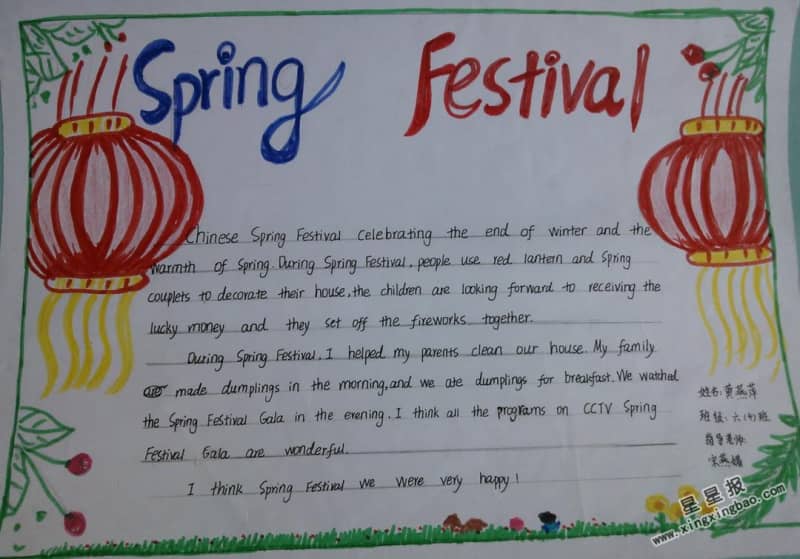 Spring Festival
Chinese Spring Festival Celebrating the end of winter and the
warmth of Spring. During Spring Festival, people use red lantern and Spring
couplets to decorate their house, the children are looking forward to receiving the
lucky money and they set off the fireworks together.
During Spring Festival, I helped my parents clean our house. My family
made dumplings in the morning, and we ate dumplings for breakfast. We watched
the Spring Festival Gala in the evening. I think all the programs on CCTV Spring
Festival Gala are wonderful.
I think Spring Festival we were very happy!
姓名:黄燕萍
班级:六(4)班
指导老师
宋燕娟
星星报
www.xingxingbao.com